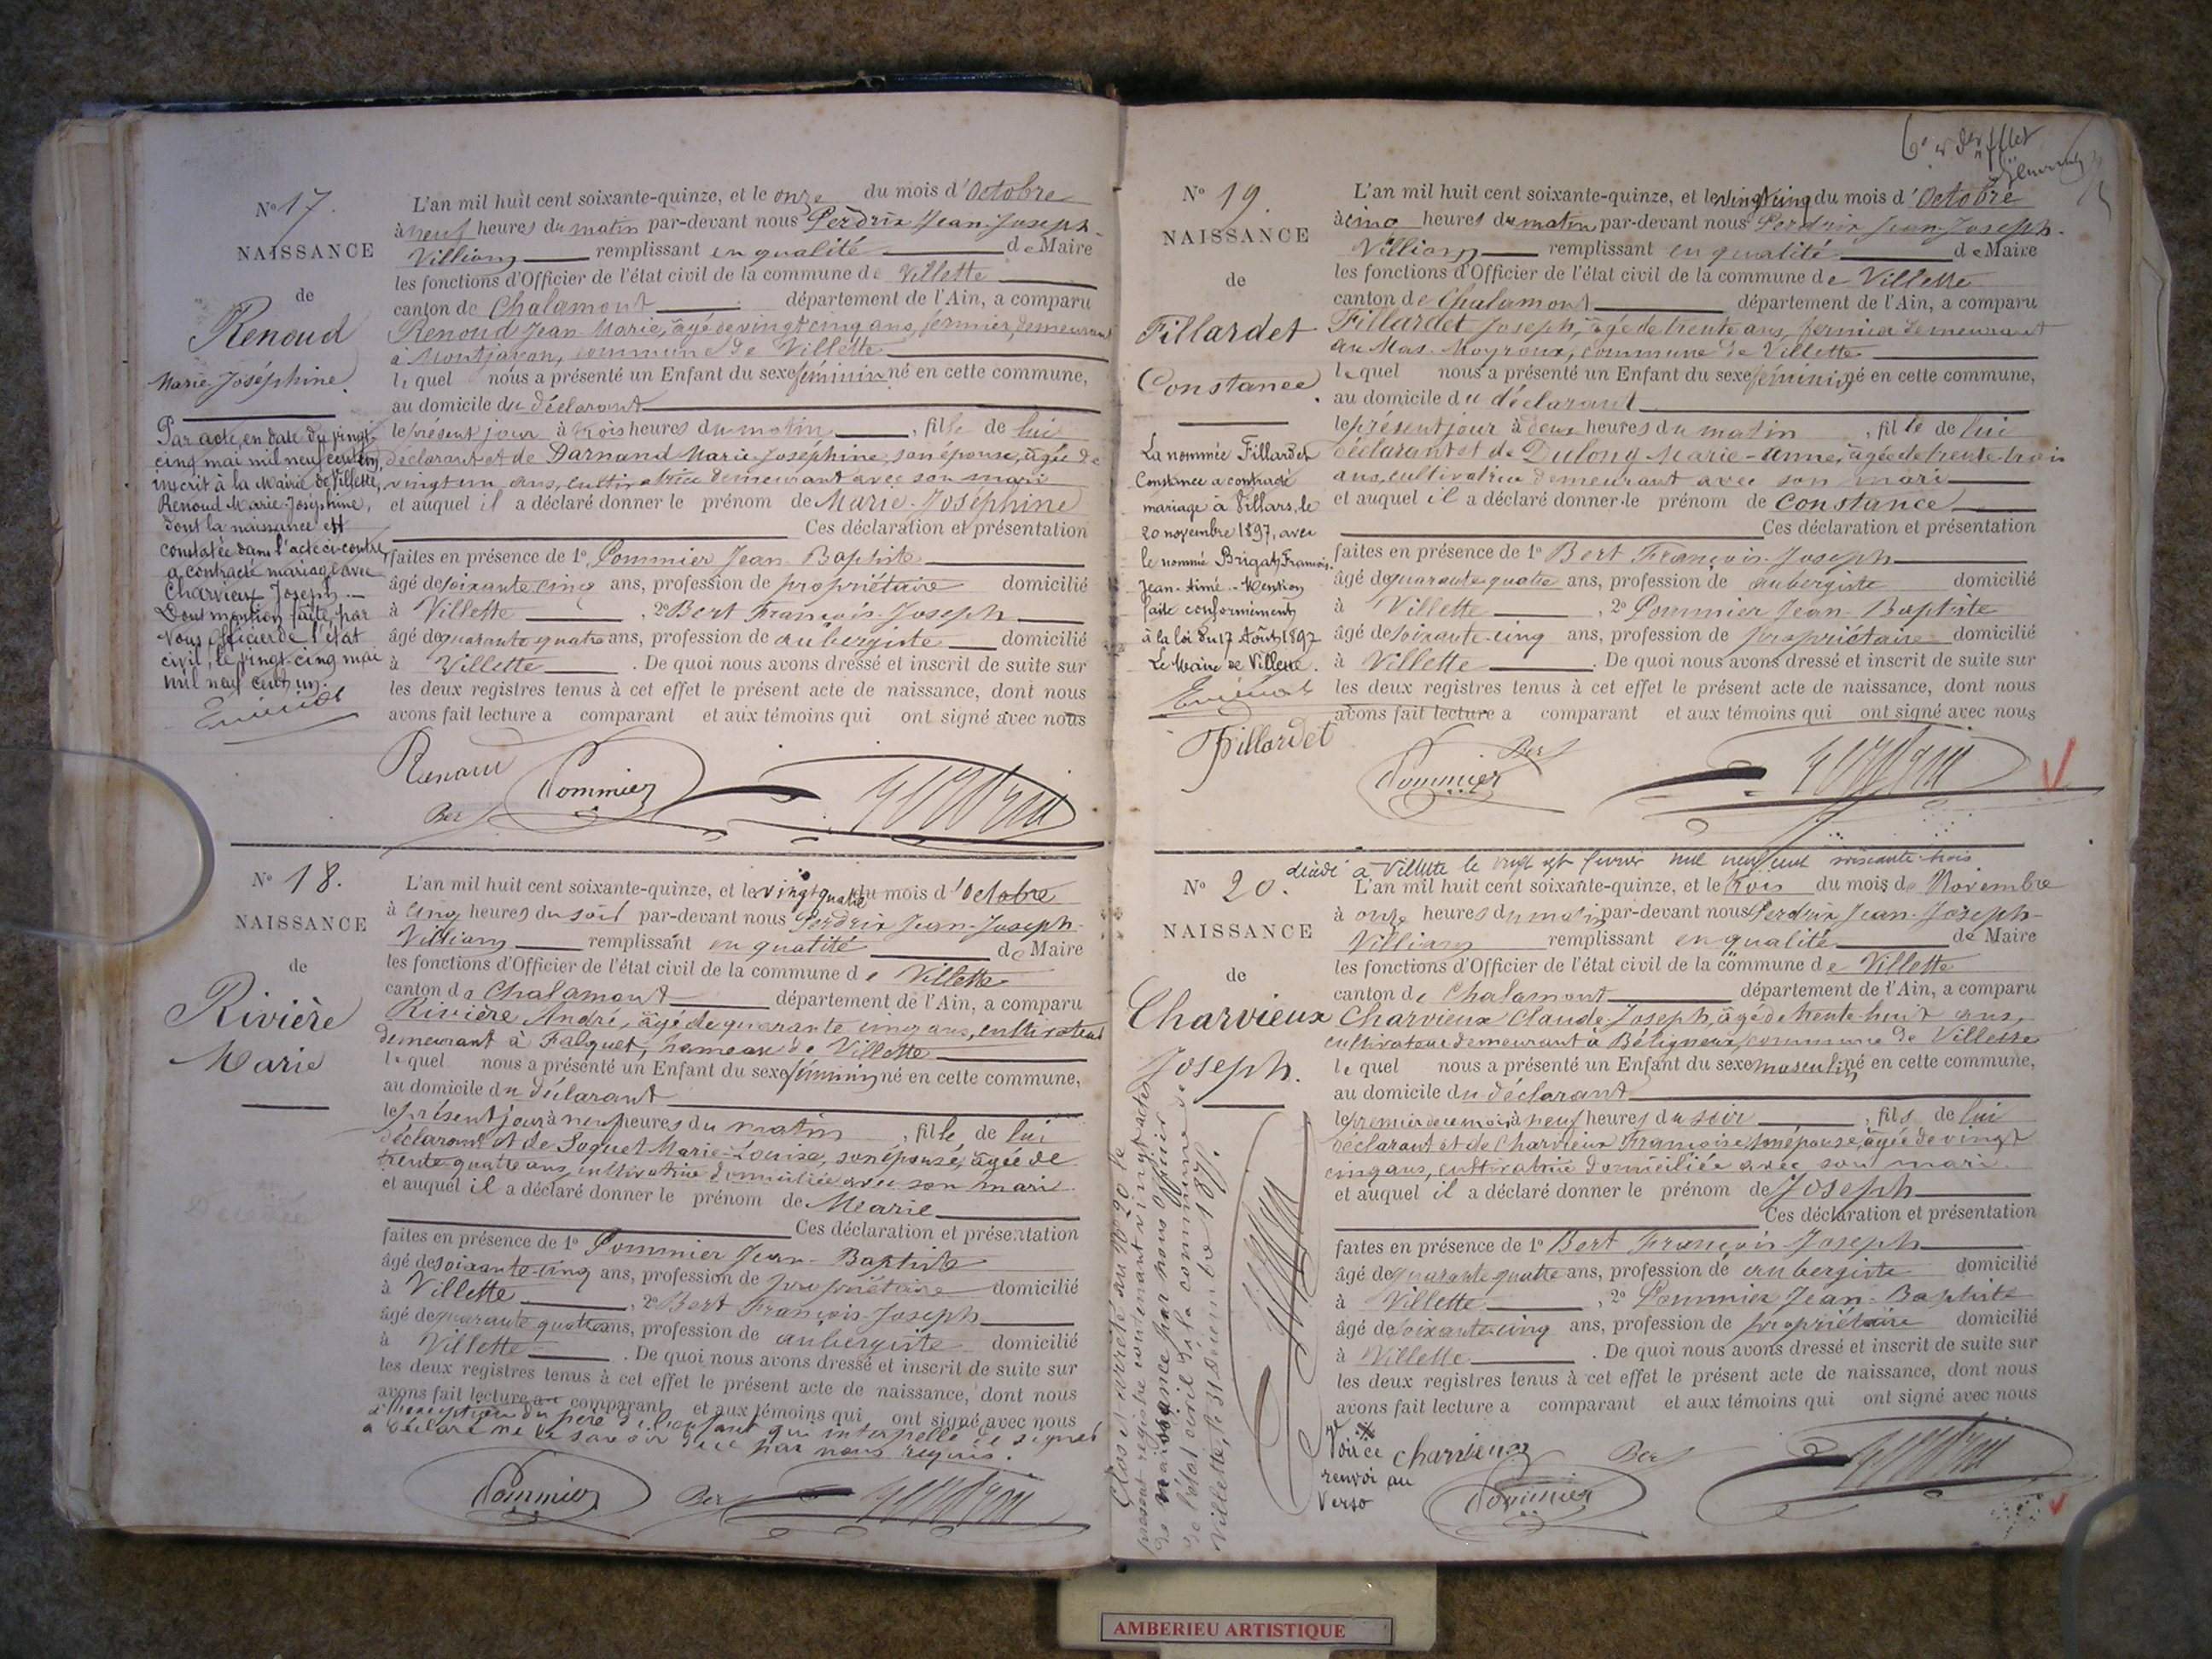 N° 17.
NAISSANCE
de
Renoud
Marie-Joséphine.
Par acte, en date du vingt-
cinq mai mil neuf cent un,
inscrit à la Mairie de Villette,
Renoud Marie-Joséphine,
dont la naissance est
constatée dans l'acte ci-contre,
a contracté mariage avec
Charvieux Joseph.—
Dont mention faite par
Nous officier de l'état
civil, le vingt-cinq mai
mil neuf cent un.
L'an mil huit cent soixante-quinze, et le onze du mois d'Octobre
à neuf heures du matin par-devant nous Perdrix Jean-Joseph-
Villiam remplissant en qualité de Maire
les fonctions d'Officier de l'état civil de la commune de Villette
canton de Chalamont département de l'Ain, a comparu
Renoud Jean-Marie, âgé de vingt cinq ans, fermier, demeurant
à Montjavon, commune de Villette
lequel nous a présenté un Enfant du sexe féminin né en cette commune,
au domicile du déclarant
le présent jour à trois heures du matin, fille de lui
déclarant et de Darnand Marie-Joséphine, son épouse, âgée de
vingt un ans, cultivatrice demeurant avec son mari
et auquel il a déclaré donner le prénom de Marie-Joséphine
Ces déclaration et présentation
faites en présence de 1° Pommier Jean-Baptiste
âgé de soixante cinq ans, profession de propriétaire domicilié
à Villette, 2° Bert François-Joseph
âgé de quarante quatre ans, profession de aubergiste domicilié
à Villette. De quoi nous avons dressé et inscrit de suite sur
les deux registres tenus à cet effet le présent acte de naissance, dont nous
avons fait lecture a comparant et aux témoins qui ont signé avec nous
Renoud
Pommier
Bert
N° 18.
NAISSANCE
de
Rivière
Marie
L'an mil huit cent soixante-quinze, et le vingt quatre du mois d'Octobre
à cinq heures du soir par-devant nous Perdrix Jean-Joseph-
Villiam remplissant en qualité de Maire
les fonctions d'Officier de l'état civil de la commune de Villette
canton de Chalamont département de l'Ain, a comparu
Rivière André, âgé de quarante cinq ans, cultivateur
demeurant à Falquet, hameau de Villette
lequel nous a présenté un Enfant du sexe féminin né en cette commune,
au domicile du déclarant
le présent jour à neuf heures du matin, fille de lui
déclarant et de Soquet Marie-Louise, son épouse, âgée de
trente-quatre ans, cultivatrice domiciliée avec son mari
et auquel il a déclaré donner le prénom de Marie
Ces déclaration et présentation
faites en présence de 1° Pommier Jean-Baptiste
âgé de soixante-cinq ans, profession de propriétaire domicilié
à Villette, 2° Bert François-Joseph
âgé de quarante quatre ans, profession de aubergiste domicilié
à Villette. De quoi nous avons dressé et inscrit de suite sur
les deux registres tenus à cet effet le présent acte de naissance, dont nous
avons fait lecture au comparant et aux témoins qui ont signé avec nous
à l'exception du père de l'enfant qui interpellé de signer
a déclaré ne le savoir de ce par nous requis.
Pommier
Bert
N° 19.
NAISSANCE
de
Fillardet
Constance.
La nommée Fillardet
Constance a contracté
mariage à Villars, le
20 novembre 1897, avec
le nommé Brigat François-
Jean-Aimé.- Mention
faite conformément
à la loi du 17 Août 1897
Le Maire de Villette.
L'an mil huit cent soixante-quinze, et le vingt cinq du mois d'Octobre
à cinq heures du matin par-devant nous Perdrix Jean-Joseph-
Villiam remplissant en qualité de Maire
les fonctions d'Officier de l'état civil de la commune de Villette
canton de Chalamont département de l'Ain, a comparu
Fillardet Joseph, âgé de trente ans, fermier demeurant
au Mas-Moyroux, commune de Villette
lequel nous a présenté un Enfant du sexe féminin né en cette commune,
au domicile du déclarant
le présent jour à deux heures du matin, fille de lui
déclarant et de Dulong Marie-Anne, âgée de trente-trois
ans, cultivatrice demeurant avec son mari
et auquel il a déclaré donner le prénom de Constance
Ces déclaration et présentation
faites en présence de 1° Bert François-Joseph
âgé de quarante quatre ans, profession de aubergiste domicilié
à Villette, 2° Pommier Jean-Baptiste
âgé de soixante-cinq ans, profession de propriétaire domicilié
à Villette. De quoi nous avons dressé et inscrit de suite sur
les deux registres tenus à cet effet le présent acte de naissance, dont nous
avons fait lecture a comparant et aux témoins qui ont signé avec nous
Fillardet
Pommier
Bert
décédé à Villette le vingt sept février mil neuf cent soixante-trois
N° 20.
NAISSANCE
de
Charvieux
Joseph.
L'an mil huit cent soixante-quinze, et le trois du mois de Novembre
à onze heures du matin par-devant nous Perdrix Jean-Joseph-
Villiam remplissant en qualité de Maire
les fonctions d'Officier de l'état civil de la commune de Villette
canton de Chalamont département de l'Ain, a comparu
Charvieux Claude-Joseph, âgé de trente-huit ans,
cultivateur demeurant à Béligneux, commune de Villette
lequel nous a présenté un Enfant du sexe masculin né en cette commune,
au domicile du déclarant
le premier de ce mois à neuf heures du soir, fils de lui
déclarant et de Charvieux Françoise, son épouse, âgée de vingt
cinq ans, cultivatrice domiciliée avec son mari.
et auquel il a déclaré donner le prénom de Joseph
Ces déclaration et présentation
faites en présence de 1° Bert François-Joseph
âgé de quarante quatre ans, profession de aubergiste domicilié
à Villette, 2° Pommier Jean-Baptiste
âgé de soixante-cinq ans, profession de propriétaire domicilié
à Villette. De quoi nous avons dressé et inscrit de suite sur
les deux registres tenus à cet effet le présent acte de naissance, dont nous
avons fait lecture a comparant et aux témoins qui ont signé avec nous
Voir ce
renvoi au
Verso
Charvieux
Pommier
Bert
Clos et arrêté au N° 20 le
présent registre contenant vingt actes
de naissance par nous Officier
de l'état civil de la commune de
Villette, le 31 Décembre 1875.
AMBERIEU ARTISTIQUE